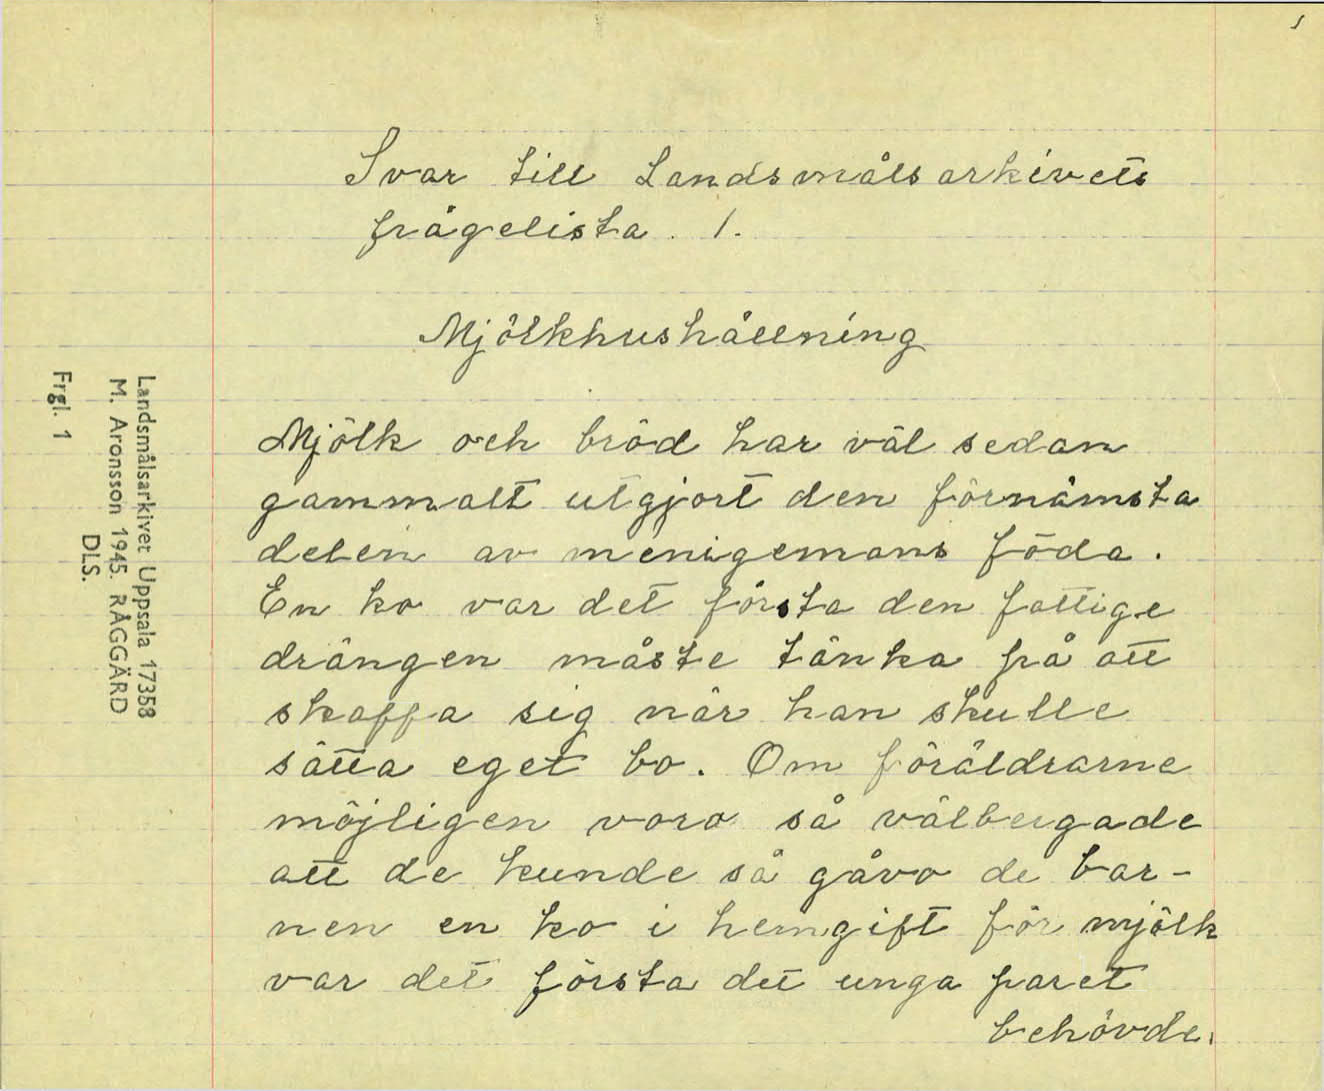 1
Svar till Landsmålsarkivets
frågelista 1.
Mjölkhushållning
Landsmålsarkivet Uppsala 17358
M. Aronsson 1945. RÅGGÄRD
DLS.
Frgl. 1
Mjölk och bröd har väl sedan
gammalt utgjort den förnämsta
delen av menigemans föda.
En ko var det första den fattige
drängen måste tänka på att
skaffa sig när han skulle
sätta eget bo. Om föräldrarne
möjligen voro så välbergade
att de kunde så gåvo de bar-
nen en ko i hemgift för mjölk
var det första det unga paret
behövde.